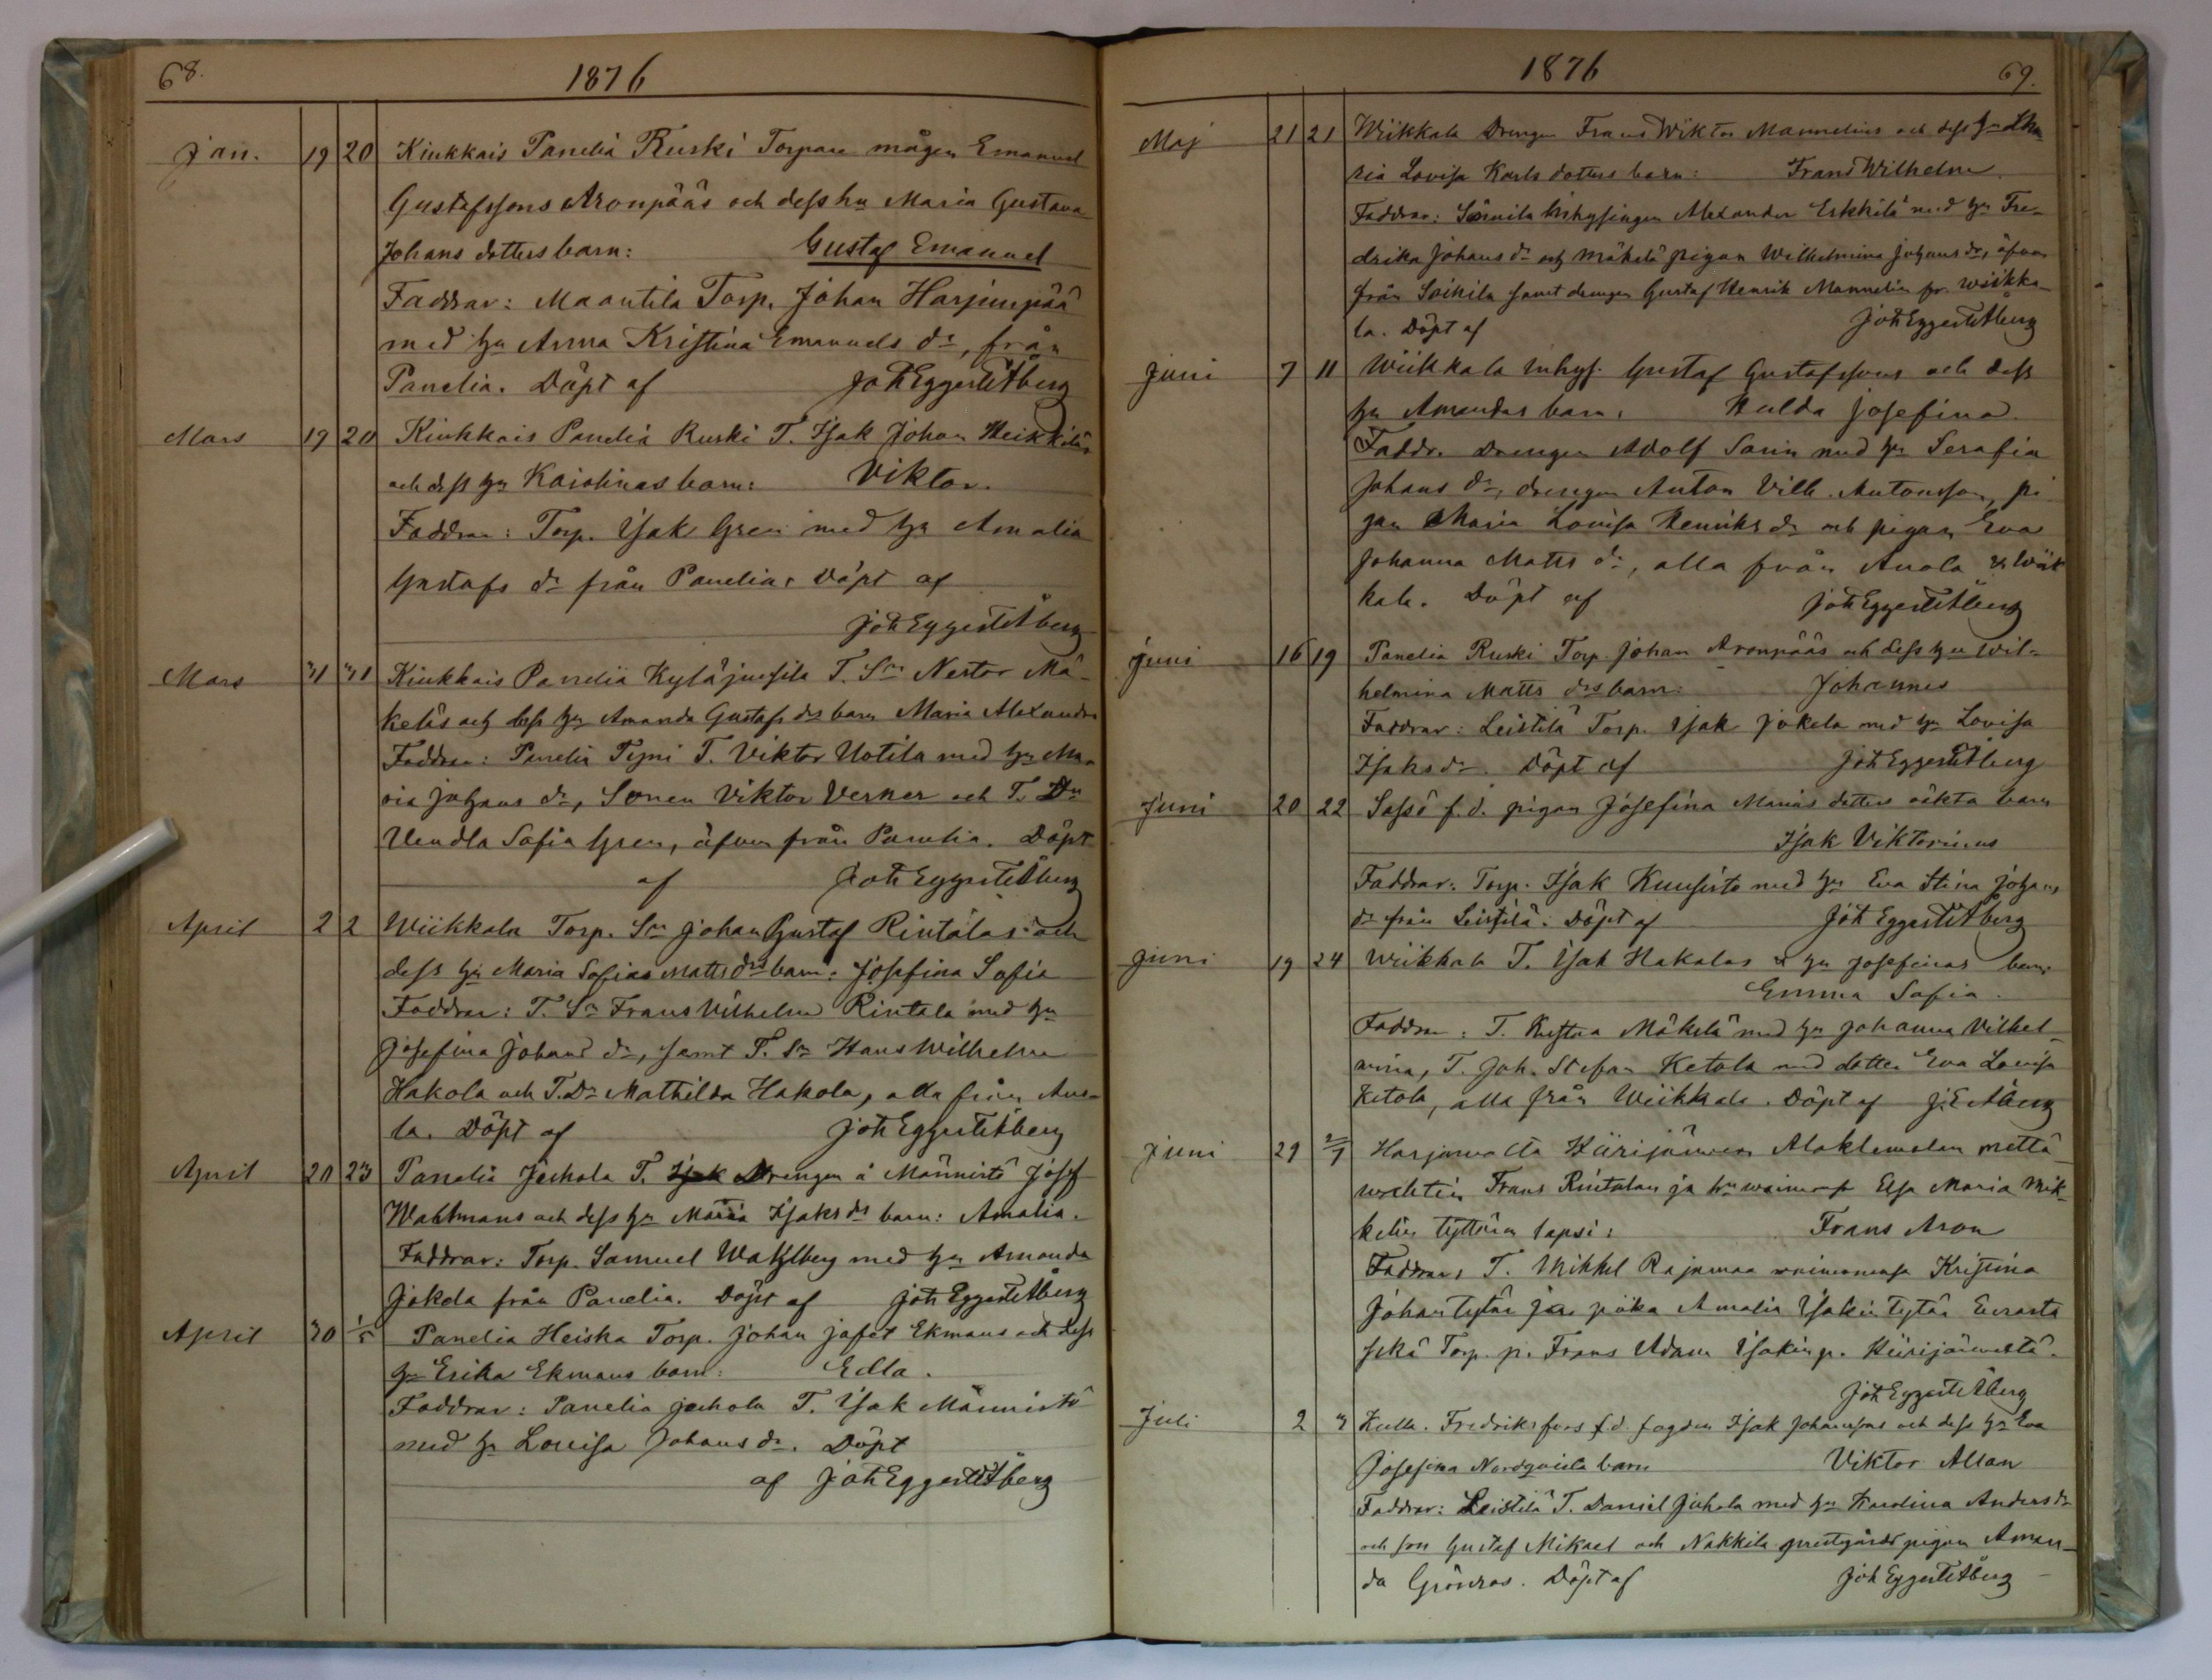 68.
1876
Jan. 19 20 Kiukkais Panelia Ruski Torpare mågen Emanuel
Gustafssons Aronpääs och dess hu Maria Gustava
Johans dotters barn: Gustaf Emanuel
Faddrar: Maantila Torp. Johan Harjunpää
med hu Anna Kristina Emanuels dr, från
Panelia. Döpt af Joh Eggert Åberg
Mars 19 20 Kiukkais Panelia Ruski T. Isak Johan Heikkiläs
och dess hu Karolinas barn: Viktor.
Faddrar: Torp. Isak Gren med hu Amalia
Gustafs dr från Panelia. Döpt af
Joh Eggert Åberg
Mars 31 31 Kiukkais Panelia Kyläjuusila T. Sn Nestor Mä-
keläs och dess hu Amanda Gustafs drs barn Maria Alexandra
Faddrar: Panelia T. Viktor Uotila med hu Ma-
ria Johans dr, Sonen Viktor Verner och T. Dr
Vendla Sofia Gren, äfven från Panelia. Döpt
af Joh Eggert Åberg
April 2 2 Wiikkala Torp. Sn Johan Gustaf Rintalas och
dess hu Maria Sofias Matts drs barn: Josefina Sofia
Faddrar: T. Sn Frans Wilhelm Rintala med hu
Josefina Johans dr, samt T. Sn Hans Wilhelm
Hakola och T. Dr Mathilda Hakola, alla från Ano-
la. Döpt af Joh Eggert Åberg
April 20 23 Panelia Juhola T. Drengen å Männistö Josef
Wahlmans och dess hu Maria Isaks drs barn: Amalia.
Faddrar: Torp. Samuel Wahlberg med hu Amanda
Jokela från Panelia. Döpt af Joh Eggert Åberg
April 30 1/5 Panelia Heiska Torp. Johan Jafet Ekmans och dess
hu Erika Ekmans barn: Edla.
Faddrar: Panelia Juhola T. Isak Männistö
med hu Lovisa Johans dr. Döpt
af Joh Eggert Åberg
1876
69.
Maj 21 21 Wiikkala Drengen Frans Wiktor Mannelins och dess hu Ma-
ria Lovisa Karls dotters barn: Frans Wilhelm.
Faddrar: inhysingen Alexander Erkkilä med hu Fre-
drika Johans dr och Mäkelä pigan Wilhelmina Johans dr, äfven
från samt drengen Gustaf Henrik Mannelin fr. Wiikka-
la. Döpt af Joh Eggert Åberg
Juni 7 11 Wiikkala inhys. Gustaf Gustafssons och dess
hu Amandas barn: Hulda Josefina.
Faddr. Drengen Adolf Sarin med hu Serafia
Johans dr, drengen Anton Vilh. Antonsson, pi-
gan Maria Lovisa Henriks dr och pigan Eva
Johanna Matts dr, alla från Anola & Wiik-
kala. Döpt af Joh Eggert Åberg
Juni 16 19 Panelia Ruski Torp. Johan Aronpääs och dess hu Wil-
helmina Matts drs barn: Johannes
Faddrar: Leistilä Torp. Isak Jokela med hu Lovisa
Isaks dr. Döpt af Joh Eggert Åberg
Juni 20 22 f.d. pigan Josefina Marias dotters oäkta barn
Isak Viktorinus
Faddrar: Torp. Isak Kuusisto med hu Eva Stina Johans
dr från Leistilä. Döpt af Joh Eggert Åberg
Juni 19 24 Wiikkala T. Isak Hakalas & hu Josefinas barn:
Emma Sofia.
Faddrar: T. Kustaa Mäkelä med hu Johanna Vilhel-
mina, T. Joh. Stefan Ketola med dotter Eva Lovisa
Ketola, alla från Wiikkala. Döpt af J. E. Åberg
Juni 29 2/7 Harjawalta Hiirijärwen mettä-
wahtin Frans Rintalan ja hn waimonsa Elsa Maria Mik-
kelin tyttären lapsi: Frans Aron
Faddrar: T. Mikkel Rajamaa waimonensa Kristina
Johan tytär ja piika Amalia Isakin tytär Eurasta
sekä Torp. p. Frans Adam Isakin p. Hiirijärweltä.
Joh Eggert Åberg
Juli 2 3 Kulla. Fredriksfors f.d. fogden Isak Johanssons och dess hu Eva
Josefina Nordqvists barn Viktor Allan
Faddrar: Leistilä T. Daniel Juhola med hu Karolina Anders dr
och son Gustaf Mikael och Nakkila prestgårds pigan Aman-
da Grönroos. Döpt af Joh Eggert Åberg